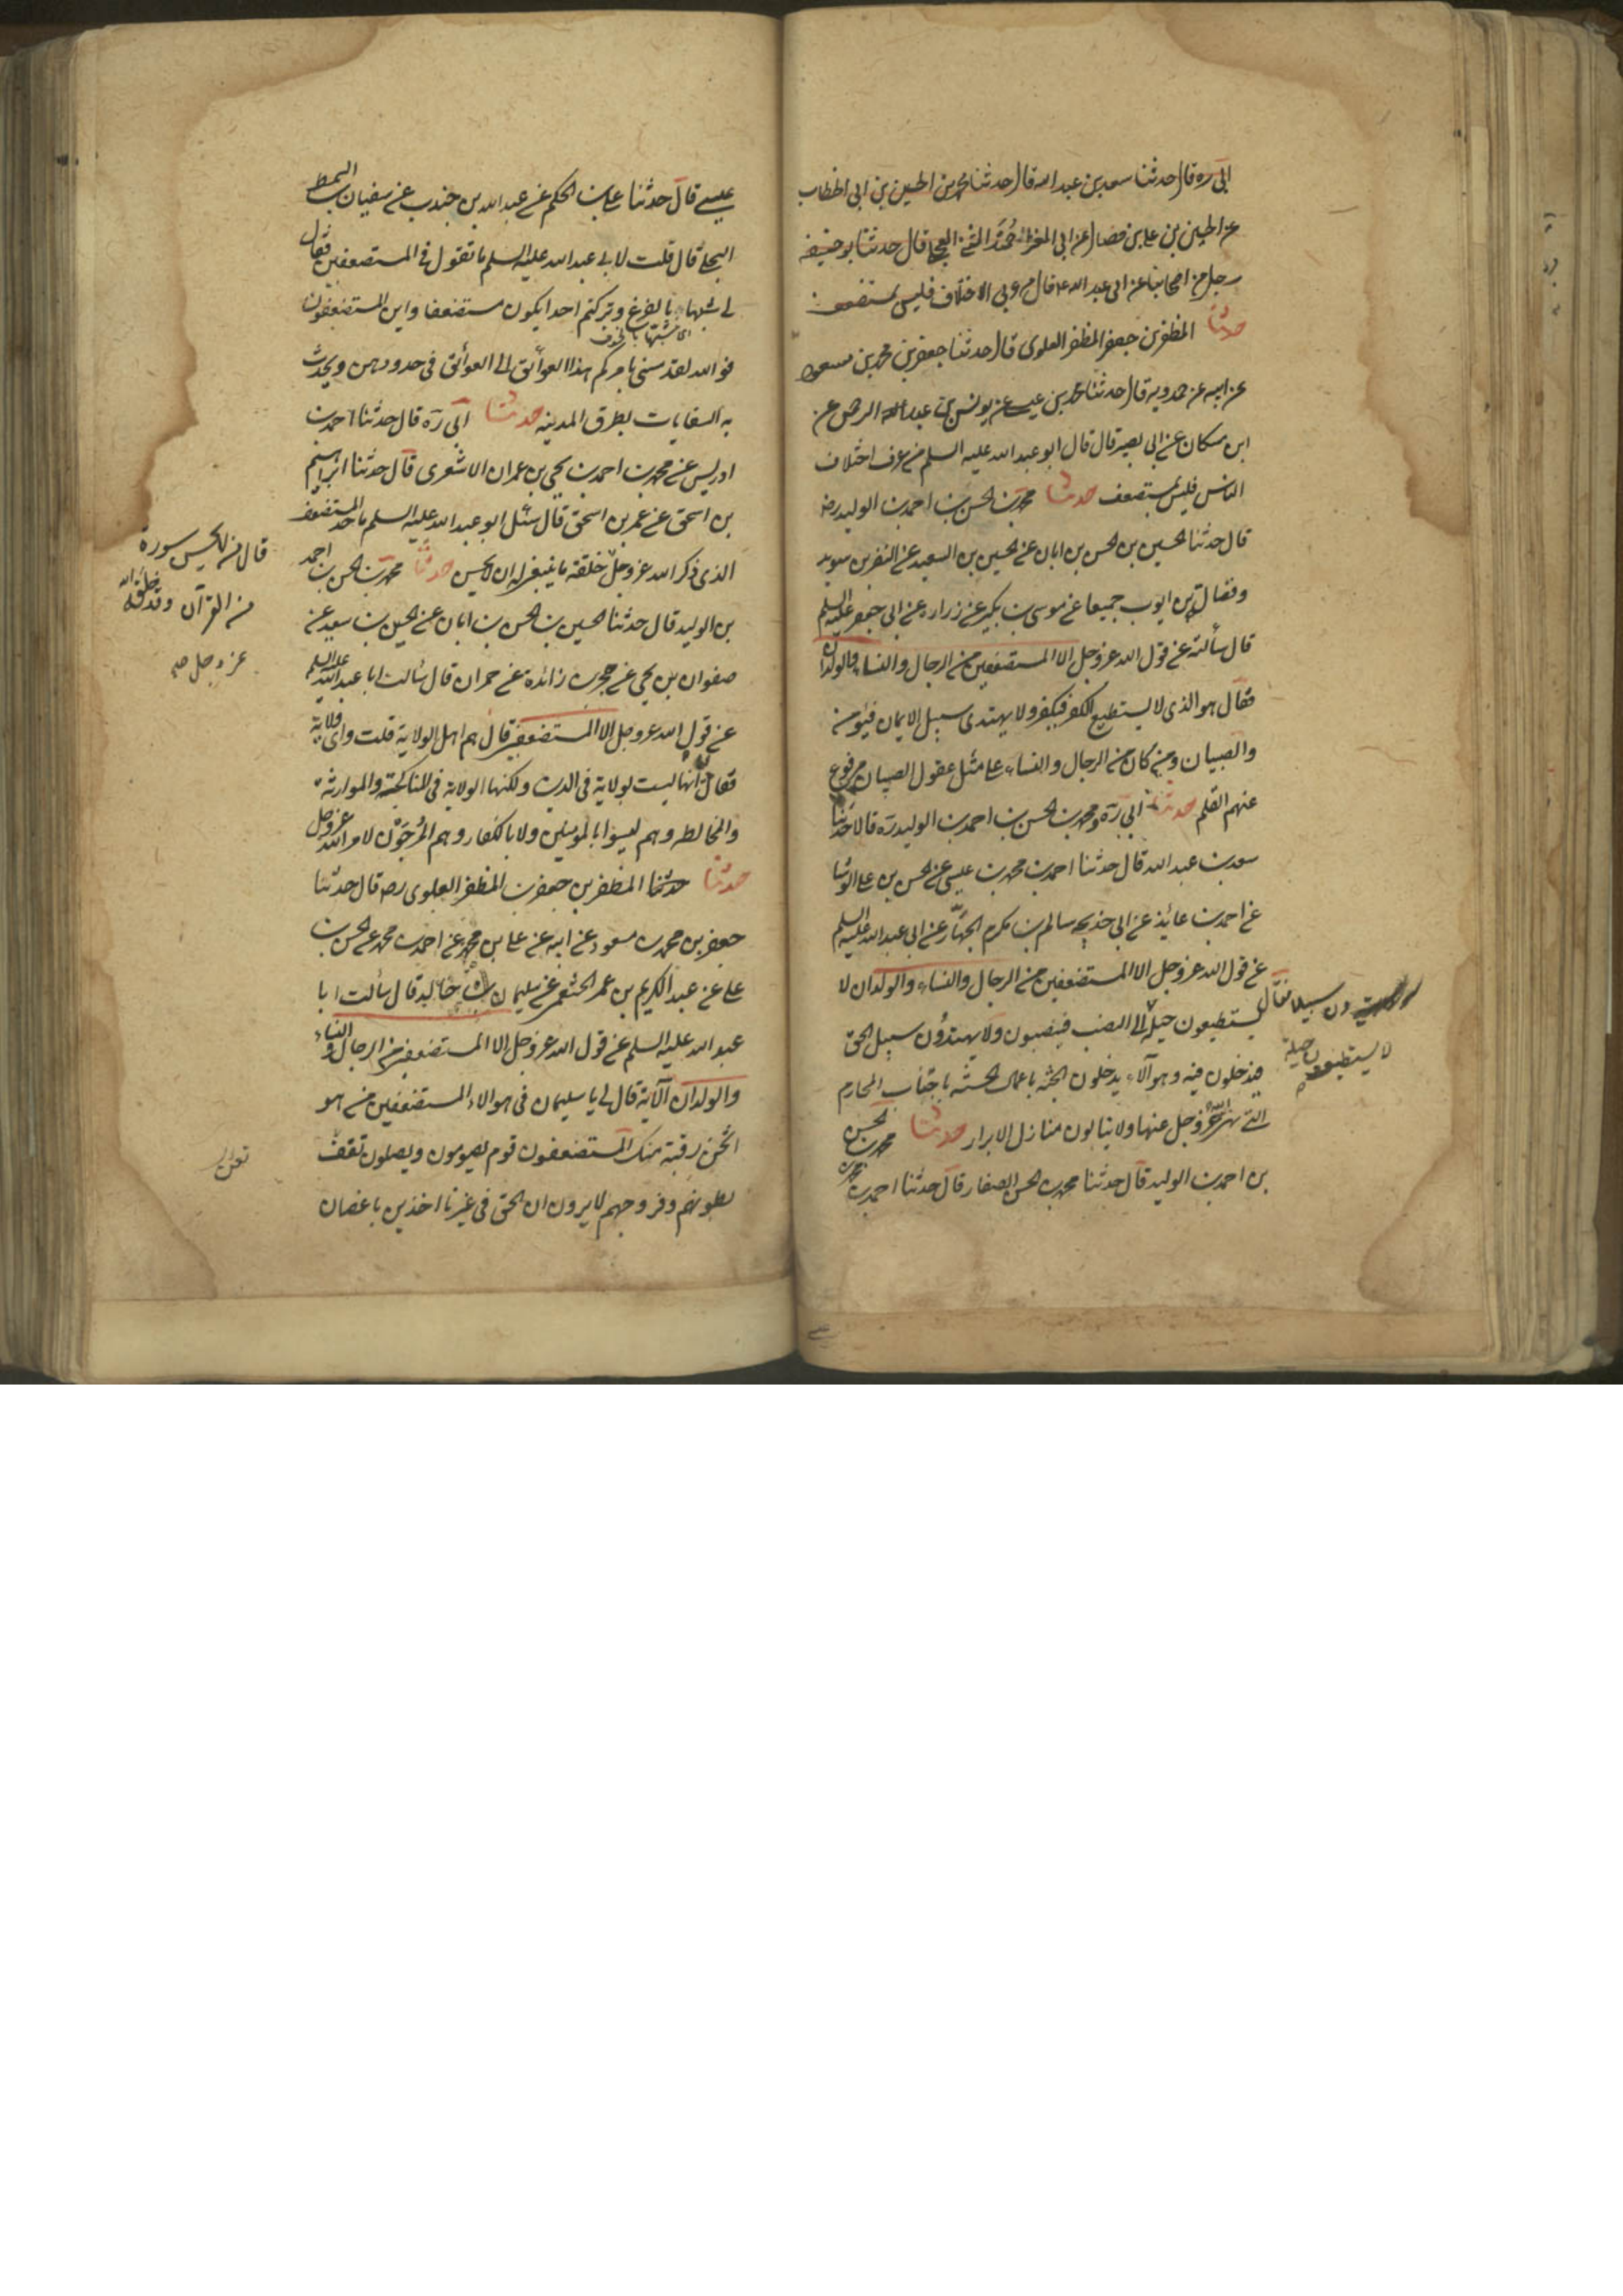 ابي ره قال حدثنا سعد بن عبد الله قال حدثنا محمد بن الحسين بن ابي الخطاب
عن الحسين بن علي بن فضال عن ابي المغرا حميد المثنى العجلي قال حدثنا ابو حنيفه
رجل من اصحابنا عن ابي عبد الله ع قال من عرف الاختلاف فليس بمستضعف
حدثنا المظفر بن جعفر المظفر العلوي قال حدثنا جعفر بن محمد بن مسعود
عن ابيه عن حمدويه قال حدثنا محمد بن عيسى عن يونس بن عبد الرحمن عن
ابن مسكان عن ابي بصير قال قال ابو عبد الله عليه السلم من عرف اختلاف
الناس فليس بمستضعف حدثنا محمد بن الحسن بن احمد بن الوليد رض
قال حدثنا الحسين بن الحسن بن ابان عن الحسين بن السعيد عن النضر بن سويد
وفضالة بن ايوب جميعا عن موسى بن بكير عن زراره عن ابي جعفر عليه السلم
قال سألته عن قول الله عز وجل الا المستضعفين من الرجال والنساء والولدان
فقال هو الذي لا يستطيع الكفر فيكفر ولا يهتدي سبيل الايمان فيؤمن
والصبيان ومن كان من الرجال والنساء على مثل عقول الصبيان مرفوع
عنهم القلم حدثنا ابي ره ومحمد بن الحسن بن احمد بن الوليد ره قالا حدثنا
سعد بن عبد الله قال حدثنا احمد بن محمد بن عيسى عن الحسن بن علي الوشا
عن احمد بن عايذ عن ابي خديجه سالم بن مكرم الجمّال عن ابي عبد الله عليه السلم
عن قول الله عز وجل الا المستضعفين من الرجال والنساء والولدان لا
يستطيعون حيلة الى النصب فينصبون ولا يهتدون سبيل الحق
يهتدون سبيلا فقال
لا يستطيعون حيلة
فيدخلون فيه وهوآلاء يدخلون الجنه باعمال الحسنه باجتناب المحارم
التي نهى الله عز وجل عنها ولا ينالون منازل الابرار حدثنا محمد بن الحسن
بن احمد بن الوليد قال حدثنا محمد بن الحسن الصفار قال حدثنا احمد بن محمد بن
عيسى قال حدثنا علي بن الحكم عن عبد الله بن جندب عن سفيان بن السمط
البجلي قال قلت لابي عبد الله عليه السلم ما تقول في المستضعفين فقال
لي شبها بالفزع وتركتم احدا يكون مستضعفا واين المستضعفون
اي مشبها بالخوف
فو الله لقد مشى بامركم هذا العواتق الى العواتق في خدورهن ويحدث
به السقايات بطرق المدينه حدثنا ابي ره قال حدثنا احمد بن
ادريس عن محمد بن احمد بن يحيى بن عمران الاشعري قال حدثنا ابراهيم
بن اسحق عن عمر بن اسحق قال سئل ابو عبد الله عليه السلم ما حد المستضعف
الذي ذكر الله عز وجل خلقه ما ينبغي له ان لا يحسن حدثنا محمد بن الحسن بن احمد
قال من لا يحسن سورة
من القرآن وقد خلقه الله
عز وجل صح
بن الوليد قال حدثنا الحسين بن الحسن بن ابان عن الحسين بن سعيد عن
صفوان بن يحيى عن حجر بن زائدة عن حمران قال سألت ابا عبد الله عليه السلم
عن قول الله عز وجل الا المستضعفين قال هم اهل الولاية قلت واي ولاية
فقال انها ليست بولاية في الدين ولكنها الولاية في المناكحة والموارثه
والمخالطه وهم ليسوا بالمومنين ولا بالكفار وهم المرجون لامر الله عز وجل
حدثنا المظفر بن جعفر بن المظفر العلوي ره قال حدثنا
جعفر بن محمد بن مسعود عن ابيه عن علي بن محمد عن احمد بن محمد عن الحسن بن
علي عن عبد الكريم بن عمر الخثعمي عن سليمن بن خالد قال سألت ابا
عبد الله عليه السلم عن قول الله عز وجل الا المستضعفين من الرجال والنساء
والولدان الآية قال لي يا سليمان في هوالاء المستضعفين من هو
اثخن رقبة منك المستضعفون قوم يصومون ويصلون تعفف
بطونهم وفروجهم لا يرون ان الحق في غيرنا اخذين باغصان